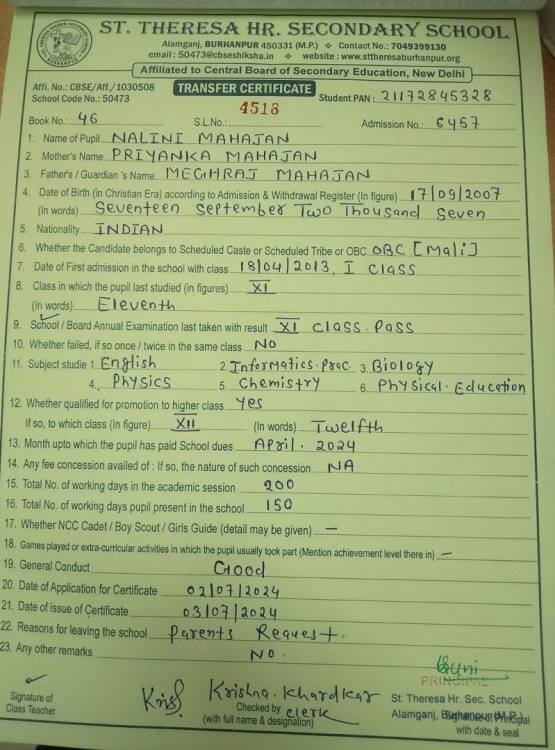 ST. THERESA HR. SECONDARY SCHOOL
Alamganj, BURHANPUR 450331 (M.P.) ❖ Contact No.: 7049399130
email : 50473@cbseshiksha.in ❖ website : www.sttheresaburhanpur.org
Affiliated to Central Board of Secondary Education, New Delhi
Affi. No.: CBSE/Aff./1030508 TRANSFER CERTIFICATE Student PAN : 21172845328
School Code No.: 50473 4518
Book No.: 46 S.L.No.: Admission No.: 6457
1. Name of Pupil NALINI MAHAJAN
2. Mother's Name PRIYANKA MAHAJAN
3. Father's / Guardian 's Name MEGHRAJ MAHAJAN
4. Date of Birth (in Christian Era) according to Admission & Withdrawal Register (In figure) 17/09/2007
(In words) Seventeen September Two Thousand Seven
5. Nationality INDIAN
6. Whether the Candidate belongs to Scheduled Caste or Scheduled Tribe or OBC OBC [Mali]
7. Date of First admission in the school with class 18/04/2013, I Class
8. Class in which the pupil last studied (in figures) XI
(In words) Eleventh
9. School / Board Annual Examination last taken with result XI Class . Pass
10. Whether failed, if so once / twice in the same class NO
11. Subject studie 1. English 2. Informatics. Prac. 3. Biology
4. Physics 5. Chemistry 6. Physical. Education
12. Whether qualified for promotion to higher class Yes
If so, to which class (In figure) XII (In words) Twelfth
13. Month upto which the pupil has paid School dues April . 2024
14. Any fee concession availed of : If so, the nature of such concession NA
15. Total No. of working days in the academic session 200
16. Total No. of working days pupil present in the school 150
17. Whether NCC Cadet / Boy Scout / Girls Guide (detail may be given) —
18. Games played or extra-curricular activities in which the pupil usually took part (Mention achievement level there in) —
19. General Conduct Good
20. Date of Application for Certificate 02/07/2024
21. Date of issue of Certificate 03/07/2024
22. Reasons for leaving the school Parents Request.
23. Any other remarks NO.
PRINCIPAL
Signature of Class Teacher
Krishna. Khardkar
Checked by clerk
(with full name & designation)
St. Theresa Hr. Sec. School
Alamganj, Burhanpur (M.P.)
Signature of Principal
with date & seal